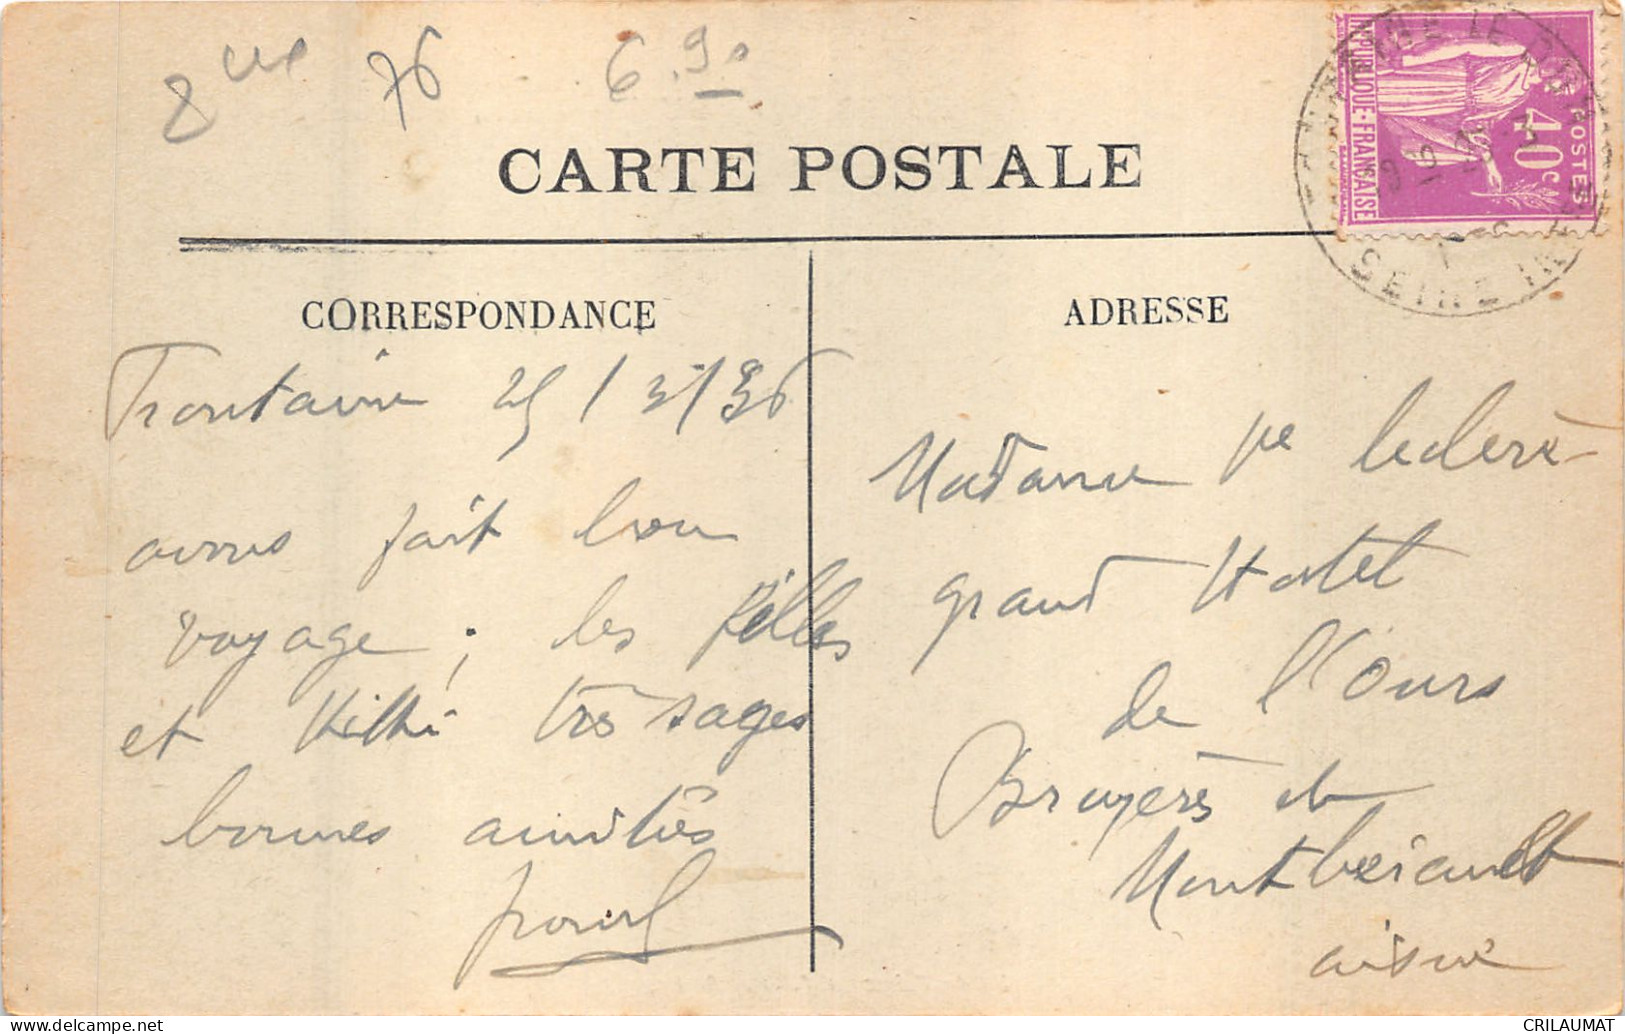 8 76 6.90
CARTE POSTALE
REPUBLIQUE FRANCAISE
POSTES
40c
LE
SEINE INF
CORRESPONDANCE
ADRESSE
Fontaine 25/3/36
avons fait bon
voyage ; les filles
et très sages
bonnes amitiés
Madame Leclere
grand Hotel
de l'Ours
Bruyères et
Montberault
aisne
delcampe.net
CRILAUMAT